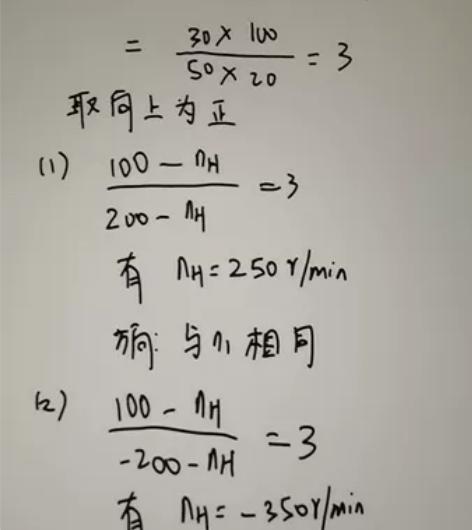 = (30 × 100)/(50 × 20) = 3
取向上为正
(1) (100 - nH)/(200 - nH) = 3
有 nH = 250 r/min
方向: 与n1相同
(2) (100 - nH)/(-200 - nH) = 3
有 nH = -350 r/min